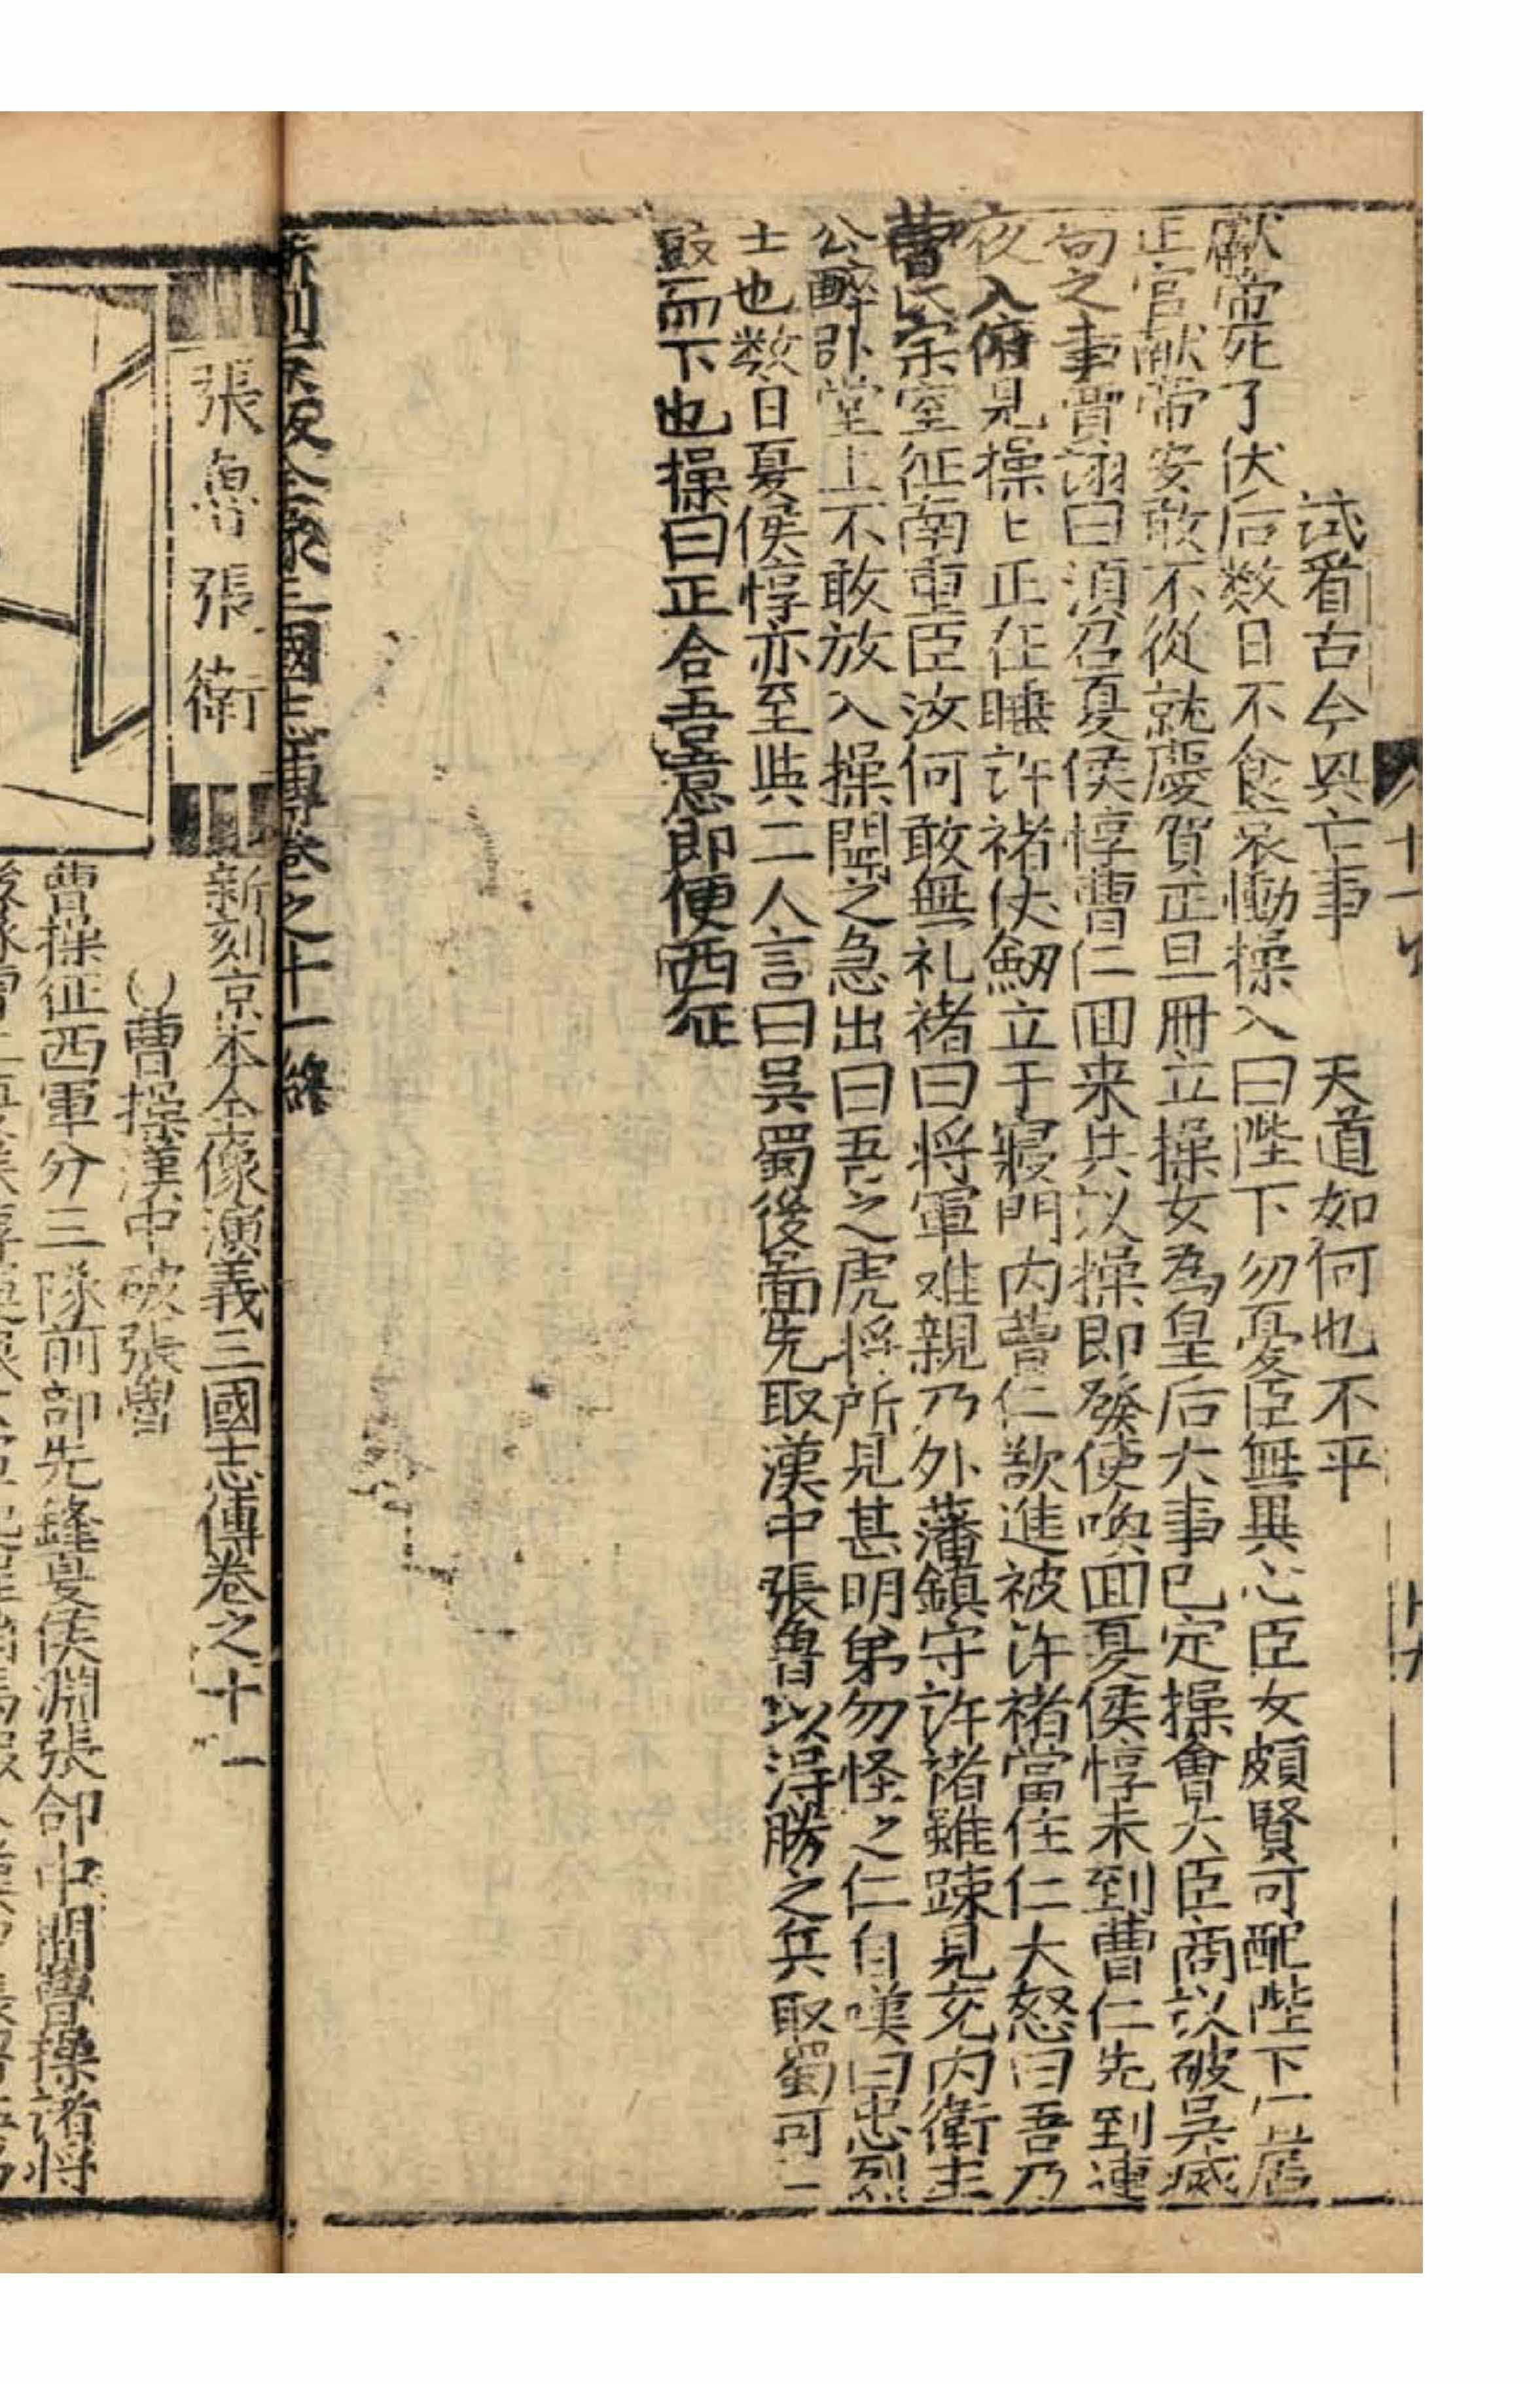 試看古今興亡事　天道如何也不平
獻帝死了伏后数日不食哀慟操入曰陛下勿憂臣無異心臣女頗賢可配陛下宜居
正宫献帝安敢不從就慶賀正旦冊立操女為皇后大事已定操會大臣商议破吳滅
蜀之事賈詡曰須召夏侯惇曹仁囬来共议操即發使喚囬夏侯惇未到曹仁先到連
夜入府見操〻正在睡許禇伏劒立于寢門内曹仁欲進被许禇當住仁大怒曰吾乃
曹氏宗室征南重臣汝何敢無礼禇曰将軍难親乃外藩鎮守許诸雖踈見充内衛主
公醉卧堂上不敢放入操聞之急出曰吾之虎将所見甚明弟勿怪之仁自嘆曰忠烈
士也数日夏侯惇亦至與二人言曰吳蜀後面先取漢中張魯以得勝之兵取蜀可一
皷而下也操曰正合吾意即便西征
新刻京板全像三國志傳卷之十一終
張魯張衛
新刻京本全像演義三國志傳卷之十一
曹操漢中破張魯
曹操征西軍分三隊前部先鋒夏侯淵張郃中間曹操諸将